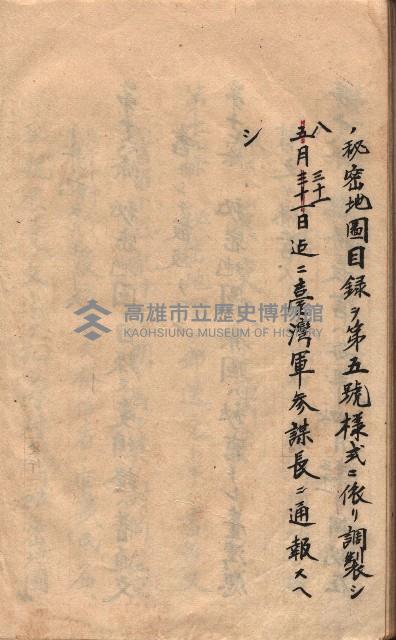 ノ秘密地圖目録ヲ第五號様式ニ依リ調製シ
八 三十一
五月三十一日迄ニ臺灣軍参謀長ニ通報スヘ
シ
高雄市立歷史博物館
KAOHSIUNG MUSEUM OF HISTORY